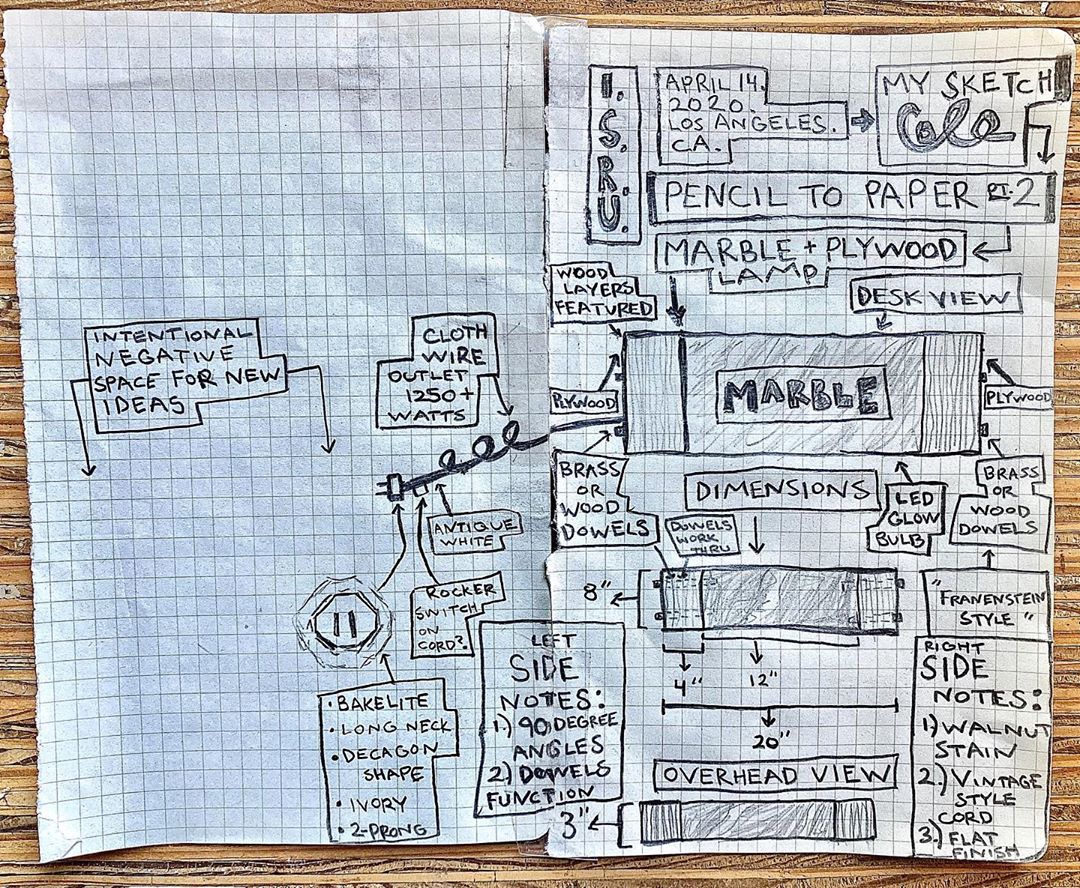 INTENTIONAL
NEGATIVE
SPACE FOR NEW
IDEAS
CLOTH
WIRE
OUTLET
1250+
WATTS
ANTIQUE
WHITE
ROCKER
SWITCH
ON
CORD?
• BAKELITE
• LONG NECK
• DECAGON
SHAPE
• IVORY
• 2-PRONG
I.
S.
R.
U.
APRIL 14.
2020.
LOS ANGELES.
CA.
MY SKETCH
Cole
PENCIL TO PAPER PT.2
MARBLE + PLYWOOD
LAMP
WOOD
LAYERS
FEATURED
DESK VIEW
PLYWOOD
MARBLE
PLYWOOD
BRASS
OR
WOOD
DOWELS
DIMENSIONS
LED
GLOW
BULB
BRASS
OR
WOOD
DOWELS
DOWELS
WORK
THRU
8"
4"
12"
20"
"
FRANENSTEIN
STYLE "
LEFT
SIDE
NOTES:
1.) 90 DEGREE
ANGLES
2.) DOWELS
FUNCTION
RIGHT
SIDE
NOTES:
1) WALNUT
STAIN
2.) VINTAGE
STYLE
CORD
3.) FLAT
FINISH
OVERHEAD VIEW
3"